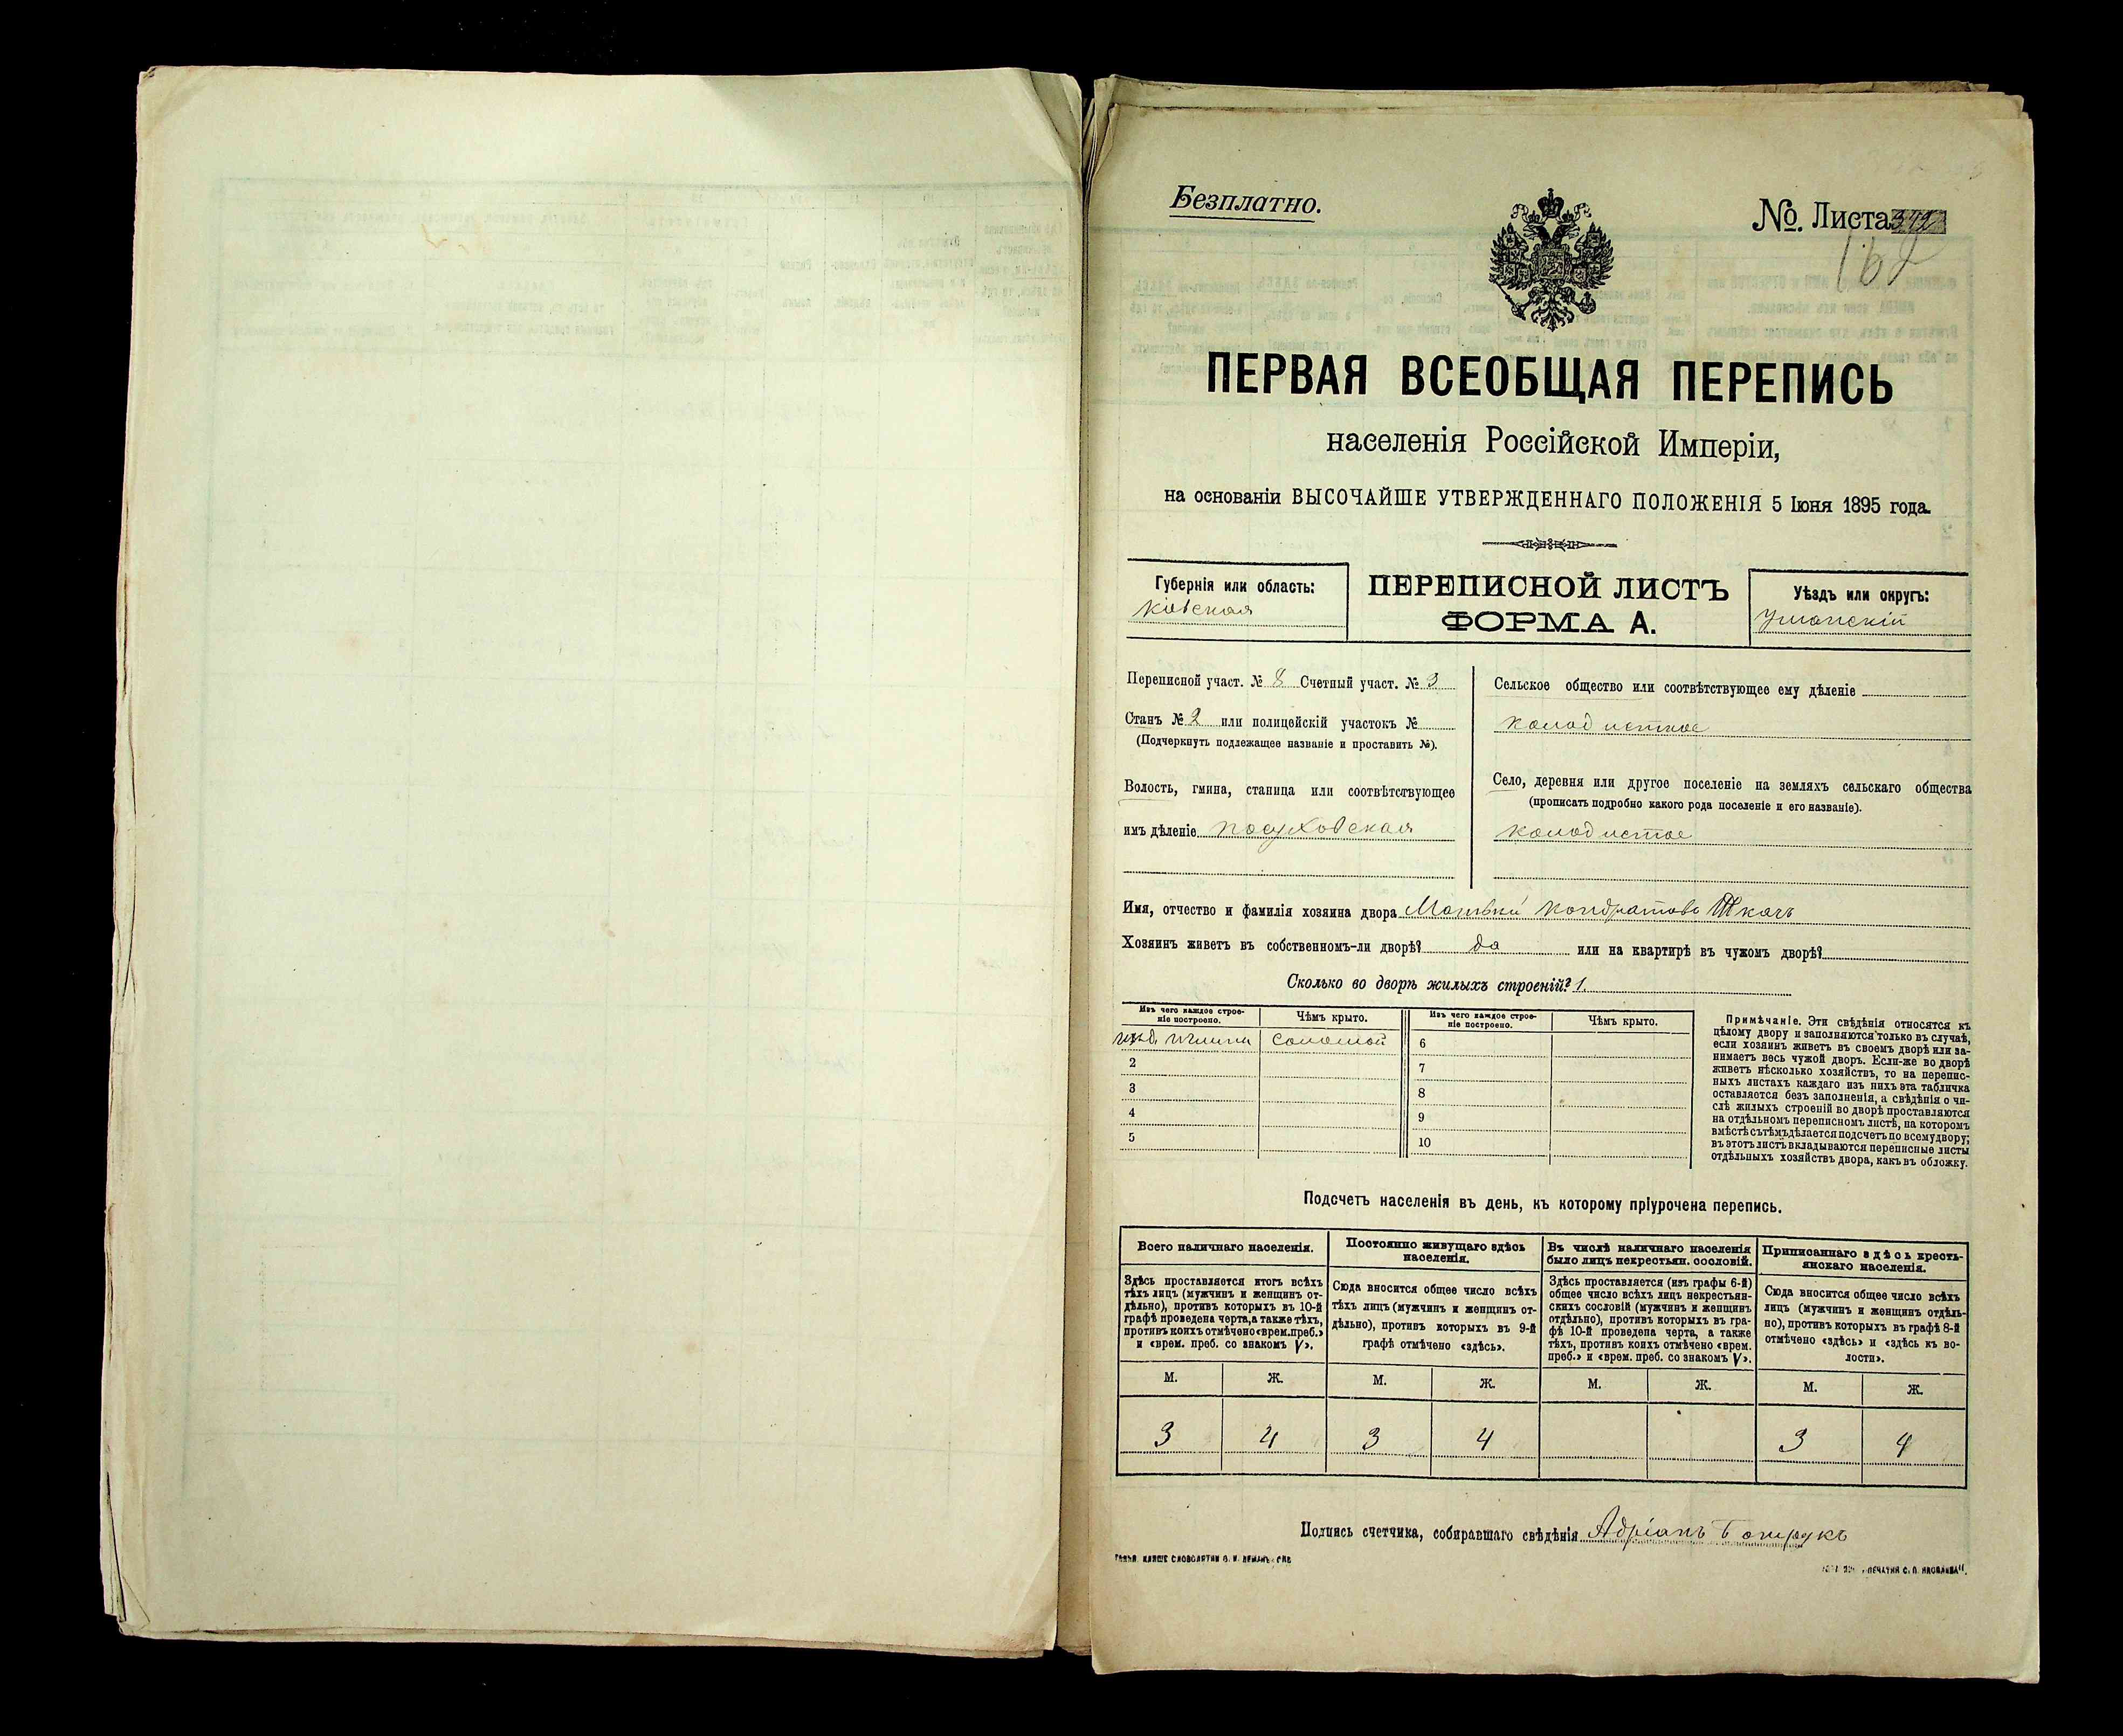 Безплатно.
№. Листа
162
ПЕРВАЯ ВСЕОБЩАЯ ПЕРЕПИСЬ
населенія Россійской Имперіи,
на основаніи ВЫСОЧАЙШЕ УТВЕРЖДЕННАГО ПОЛОЖЕНІЯ 5 Іюня 1895 года.
Губернія или область:
Кіевская
ПЕРЕПИСНОЙ ЛИСТЪ
ФОРМА А.
Уѣздъ или округъ:
Уманскій
Переписной участ. № 8 Счетный участ. № 3
Станъ № 2 или полицейскій участокъ №
(Подчеркнуть подлежащее названіе и проставить №).
Волость, гмина, станица или соотвѣтствующее
имъ дѣленіе Посуховская
Сельское общество или соотвѣтствующее ему дѣленіе
Колодистое
Село, деревня или другое поселеніе на земляхъ сельскаго общества
(прописать подробно какого рода поселеніе и его названіе).
Колодистое
Имя, отчество и фамилія хозяина двора Матвѣй Кондратовъ Ткачъ
Хозяинъ живетъ въ собственномъ-ли дворѣ? да или на квартирѣ въ чужомъ дворѣ?
Сколько во дворѣ жилыхъ строеній? 1.
Изъ чего каждое строе-
ніе построено.
Чѣмъ крыто.
Изъ чего каждое строе-
ніе построено.
Чѣмъ крыто.
глины соломой 6
2 7
3 8
4 9
5 10
Примѣчаніе. Эти свѣдѣнія относятся къ
цѣлому двору и заполняются только въ случаѣ,
если хозяинъ живетъ въ своемъ дворѣ или за-
нимаетъ весь чужой дворъ. Если-же во дворѣ
живетъ нѣсколько хозяйствъ, то на перепис-
ныхъ листахъ каждаго изъ нихъ эта табличка
оставляется безъ заполненія, а свѣдѣнія о чи-
слѣ жилыхъ строеній во дворѣ проставляются
на отдѣльномъ переписномъ листѣ, на которомъ
вмѣстѣ съ тѣмъ дѣлается подсчетъ по всему двору;
въ этотъ листъ вкладываются переписные листы
отдѣльныхъ хозяйствъ двора, какъ въ обложку.
Подсчетъ населенія въ день, къ которому пріурочена перепись.
Всего наличнаго населенія.
Здѣсь проставляется итогъ всѣхъ
тѣхъ лицъ (мужчинъ и женщинъ от-
дѣльно), противъ которыхъ въ 10-й
графѣ проведена черта, а также тѣхъ,
противъ коихъ отмѣчено «врем. преб.»
и «врем. преб. со знакомъ V».
Постоянно живущаго здѣсь
населенія.
Сюда вносится общее число всѣхъ
тѣхъ лицъ (мужчинъ и женщинъ от-
дѣльно), противъ которыхъ въ 9-й
графѣ отмѣчено «здѣсь».
Въ числѣ наличнаго населенія
было лицъ некрестьян. сословій.
Здѣсь проставляется (изъ графы 6-й)
общее число всѣхъ лицъ некрестьян-
скихъ сословій (мужчинъ и женщинъ
отдѣльно), противъ которыхъ въ гра-
фѣ 10-й проведена черта, а также
тѣхъ, противъ коихъ отмѣчено «врем.
преб.» и «врем. преб. со знакомъ V».
Приписаннаго здѣсь кресть-
янскаго населенія.
Сюда вносится общее число всѣхъ
лицъ (мужчинъ и женщинъ отдѣль-
но), противъ которыхъ въ графѣ 8-й
отмѣчено «здѣсь» и «здѣсь къ во-
лости».
М. Ж. М. Ж. М. Ж. М. Ж.
3 4 3 4 3 4
Подпись счетчика, собиравшаго свѣдѣнія Адріанъ